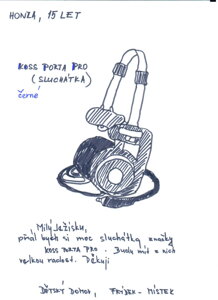 HONZA, 15 LET
KOSS PORTA PRO
(SLUCHÁTKA)
černé
Milý Ježíšku,
přál bych si moc sluchátka značky
KOSS PORTA PRO. Budu mít z nich
velkou radost. Děkuji
DĚTSKÝ DOMOV, FRÝDEK-MÍSTEK